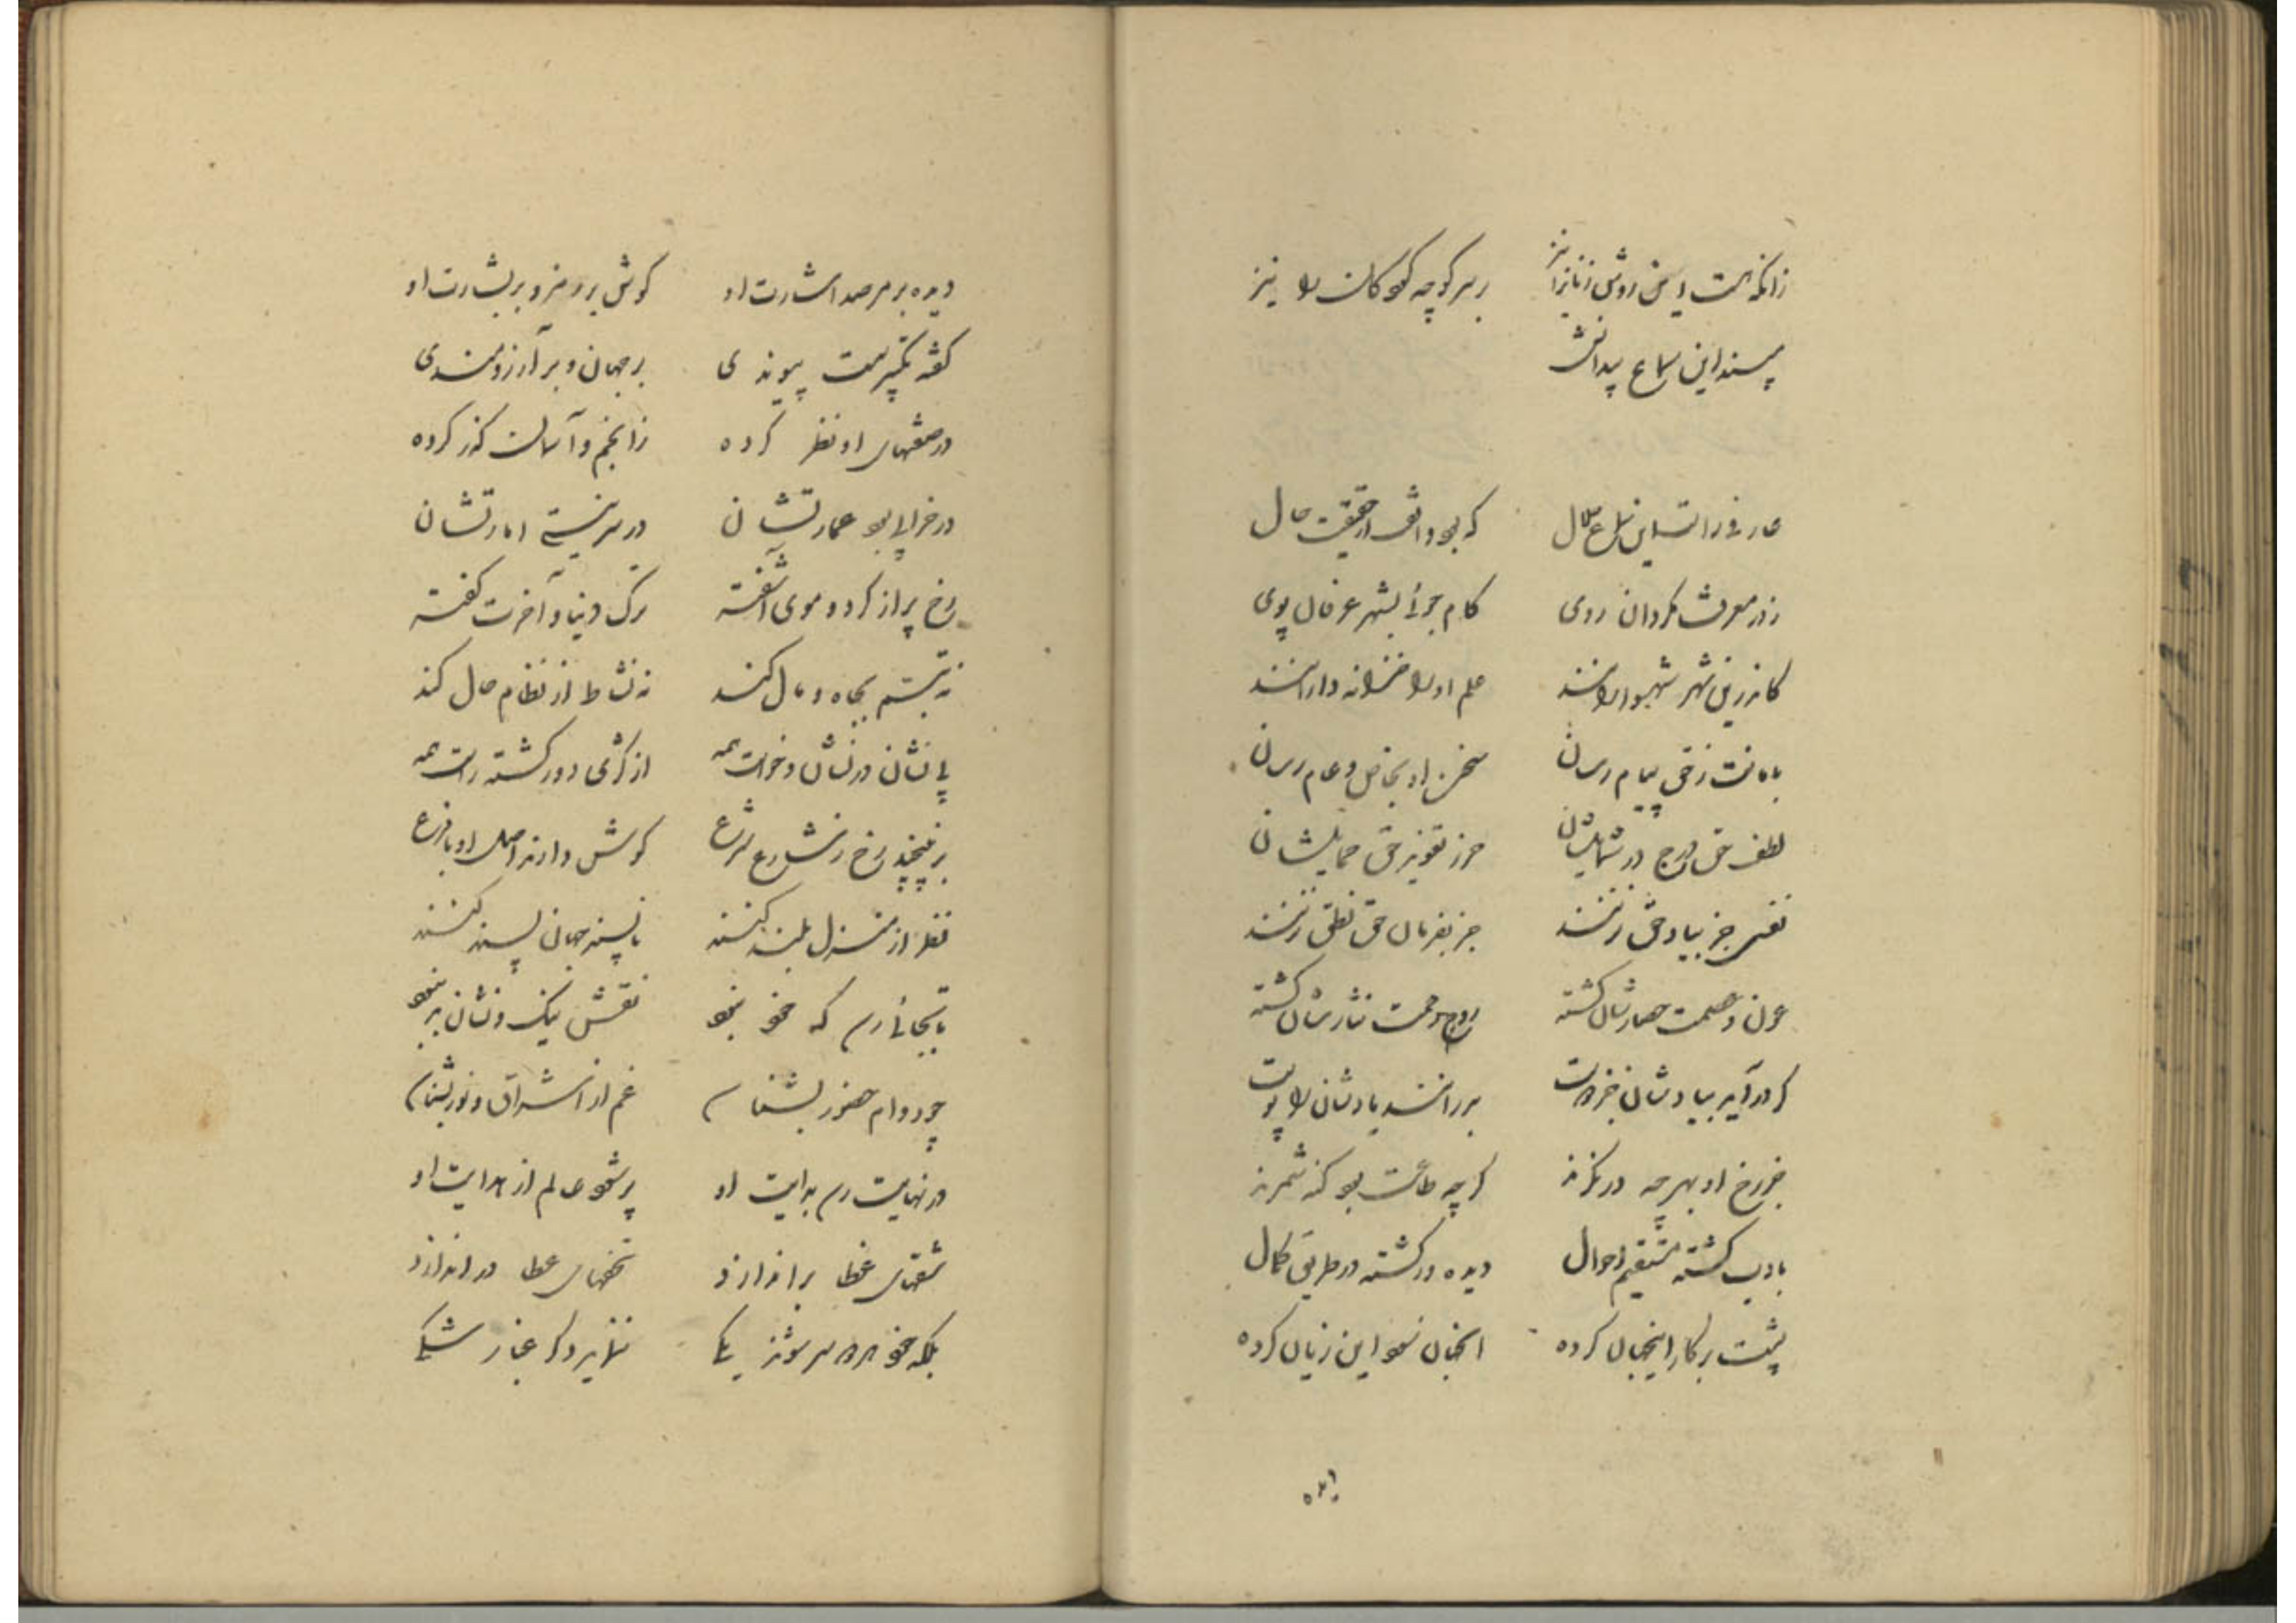 زانکه هست این روش زنانرا نیز    بر سر کوچه کودکان را نیز
مپسند این سماع بیدانش
عارفی راست این سماع حلال    که بود واقف از حقیقت حال
زور معرفت مگردان روی    کام جوئی بشهر عرفان پوی
کاندرین شهر شهسوارانند    علم او را خزانه دارانند
بامانت ز حق پیام رسان    سخن او بخاص و عام رسان
لطف حق درج در شمایلشان    حرز تعویذ حق حمایلشان
نفسی جز بیاد حق نزنند    جز بفرمان حق نطق نزنند
عون و عصمت حصارشان گشته    روح رحمت نثارشان گشته
گر در آید بیادشان جز دوست    بر رانند یادشان را پوست
جز رخ او بهر چه در نگرند    گرچه طاعت بود گنه شمرند
بادب گشته مستقیم احوال    دیده ور گشته در طریق کمال
پشت بر کار اینجهان کرده    آنجهان سود این زیان کرده
دیده بر مرصد اشارت او    گوش بر رمز و بر بشارت او
گفته تکبیر سست پیوندی    بر جهان و بر آرزومندی
در صفتهای او نظر کرده    ز انجم و آسمان گذر کرده
در خرابی بود عمارتشان    در سر نیستی امارتشان
رخ پر از گرد و موی آشفته    ترک دنیا و آخرت گفته
نه تبسم بجاه و مال کنند    نه نشاط از نظام حال کنند
بی نشان در نشان و خواست همه    از کژی دور گشته راست همه
بر نپیچند رخ ز شارع شرع    گوش دارند اصل او با فرع
نظر از منزل بلند کنند    ناپسند جهان پسند کنند
تا بجائی رسی که خود نبود    نقش نیک و نشان بد نبود
چون دوام حضور بشناسی    غم از اشراق و نور بشناسی
در نهایت رسی بدایت او    پر شود عالم از هدایت او
شقهای غطا براندازد    تحفهای عطا در اندازد
بلکه خود هر دو سر شوند یکی    ننماید دگر غبار شکی